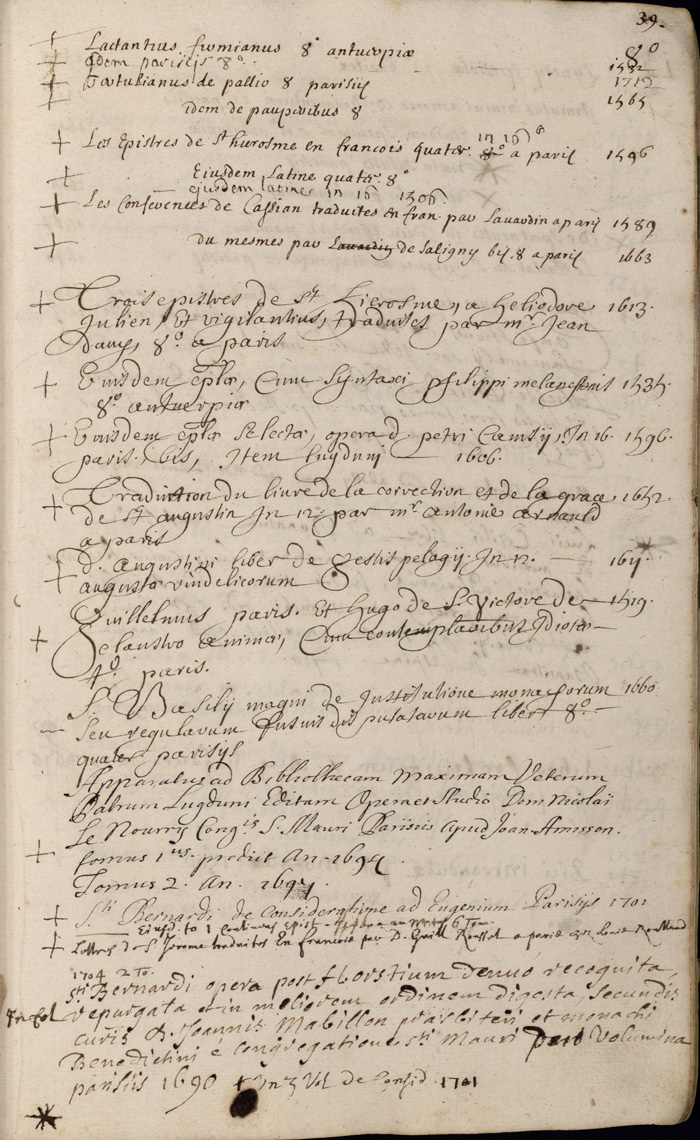 39.
+ Lactantius firmianus 8° antuerpiæ 8°
+ idem parisijs 8°. 1532
+ Tertulianus de pallio 8 parisijs 1712
+ idem de pauperibus 8 1565
in 16°
+ Les Epistres de St hierosme en francois quater. 8° a paris 1596
+ Eiusdem Latine quater. 8°
eiusdem latines in 16 1506.
+ Les Conferences de Cassian traduites en fran. par Lavardin a paris 1589
+ du mesmes par Lavardin de Saligny bis. 8 a paris 1663
+ Trois epistres de St. Hierosme, a heliodore 1613.
Julien, et vigilantius, traduites par mr. Jean
Damy, 8°. a paris
+ Eiusdem eplæ, Cum syntaxi philippi melancthonis 1535.
8° antuerpiæ
+ Eiusdem eplæ selectæ, opera d. petri Canisij, In 16. 1596.
paris. bis, Item lugduni — 1606.
+ Traduction du livre de la correction et de la grace 1652
de St augustin In 12. par mr. antoine arnauld
a paris
+ d. augustini liber de gestis pelagij. In 12. — 1611
augustæ vindelicorum
Guillelmus paris. Et hugo de S. victore de 1519.
+ Claustro animæ, Cum contemplationibus Idiotæ
4°. paris.
S. Basilij magni de Institutione monachorum 1660
— seu regularum fusius disputatarum liber 8°. —
quater parisijs
Apparatus ad Bibliothecam Maximam Veterum
Patrum Lugduni Editam Opera et Studio Dom Nicolai
Le Nourry Congis S. Mauri Parisiis apud Joan Anisson.
+ tomus 1us. prodiit An. 1694.
Tomus 2. An. 1697.
+ S.ti Bernardi de Consideratione ad Eugenium Parisijs 1701
Eiusd. to 1 continens Epist. 6 Tom.
+ Lettres de S. Jerome traduites En francois par D. Guill. Roussel a paris chez Louis Roulland
1704 2 To.
sti Bernardi opera post Horstium denuò recognita,
In fol repurgata et in meliorem ordinem digesta, secundis
curis D. Joannis Mabillon presbiteri et monachi
Benedictini è congregatione sti Mauri duo volumina
parisiis 1690 + In 3 Vol de Consid. 1701